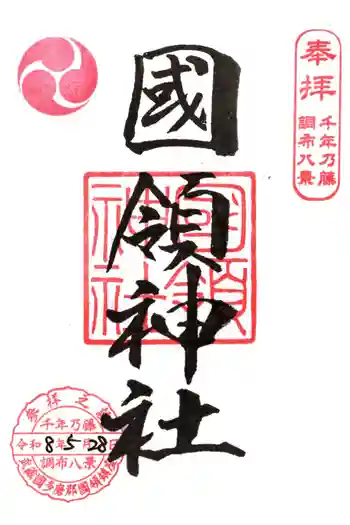 奉拝
千年乃藤
調布八景
國領神社
國領神社
参拝之證
千年乃藤
令和8年5月28日
調布八景
武蔵國多磨郡國領鎮座